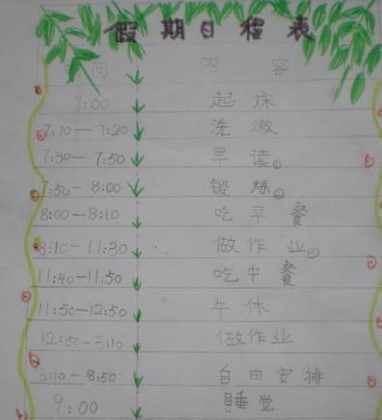 假期日程表
间 内容
7:00 起床
7:10—7:20 洗漱
7:30—7:50 早读
7:50—8:00 锻炼
8:00—8:10 吃早餐
8:10—11:30 做作业
11:40—11:50 吃午餐
11:50—12:50 午休
12:50—3:10 做作业
3:10—8:50 自由安排
9:00 睡觉